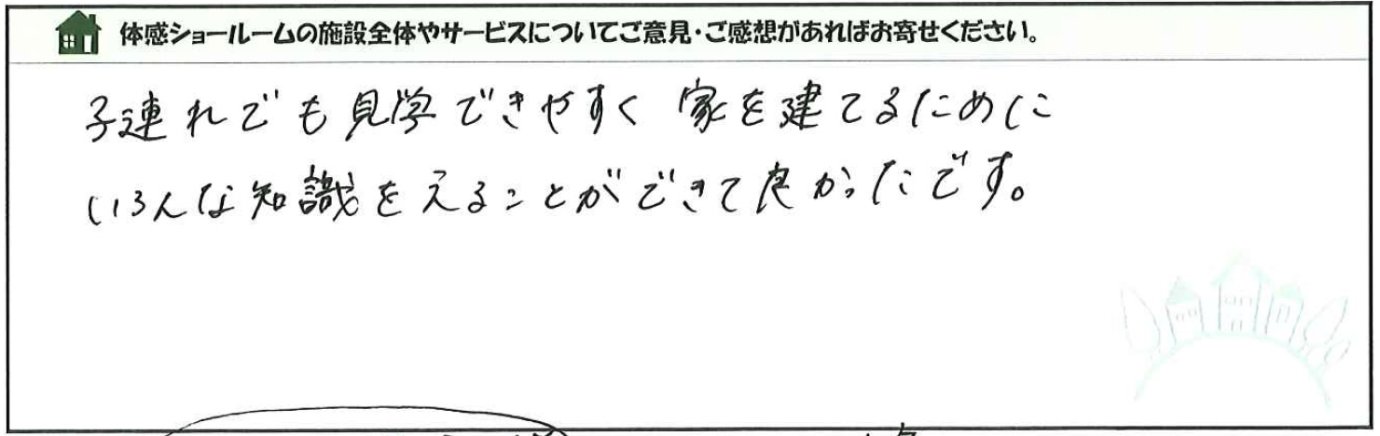 体感ショールームの施設全体やサービスについてご意見・ご感想があればお寄せください。
子連れでも見学できやすく 家を建てるために
いろんな知識をえることができて良かったです。